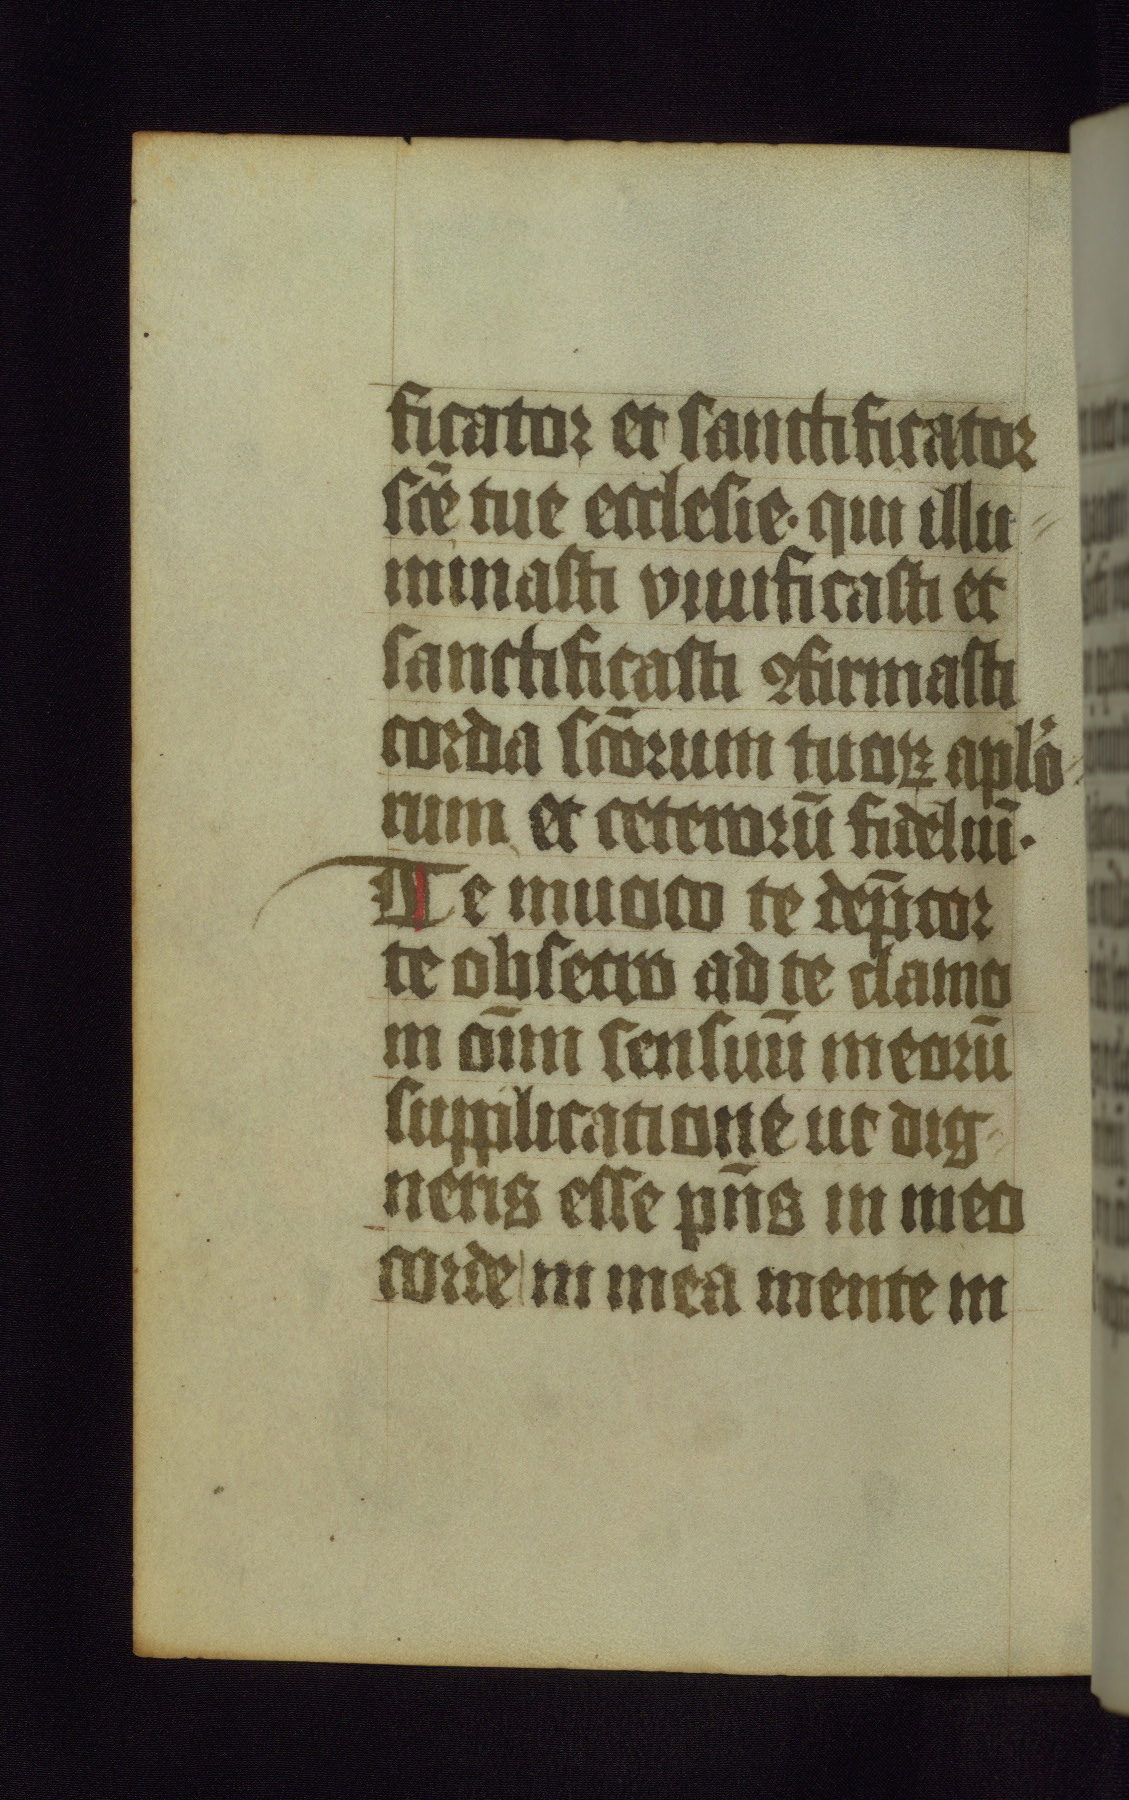 ficator et sanctificator
scē tue ecclesie· qui illu
minasti viuificasti et
sanctificasti ꝯfirmasti
corda scōrum tuoꝝ aplō
rum et ceterorū fidelium̄·
Te inuoco te dep̄cor
te obsecro ad te clamo
in om̄i sensuū meorū
supplicatione ut dig
neris esse pn̄s in meo
corde in mea mente in